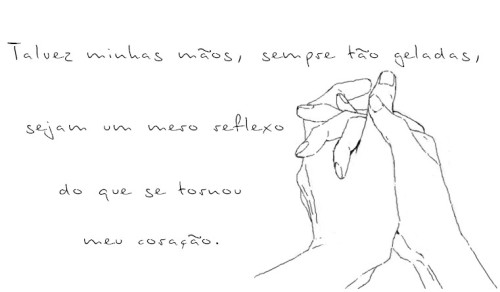 Talvez minhas mãos, sempre tão geladas,
sejam um mero reflexo
do que se tornou
meu coração.